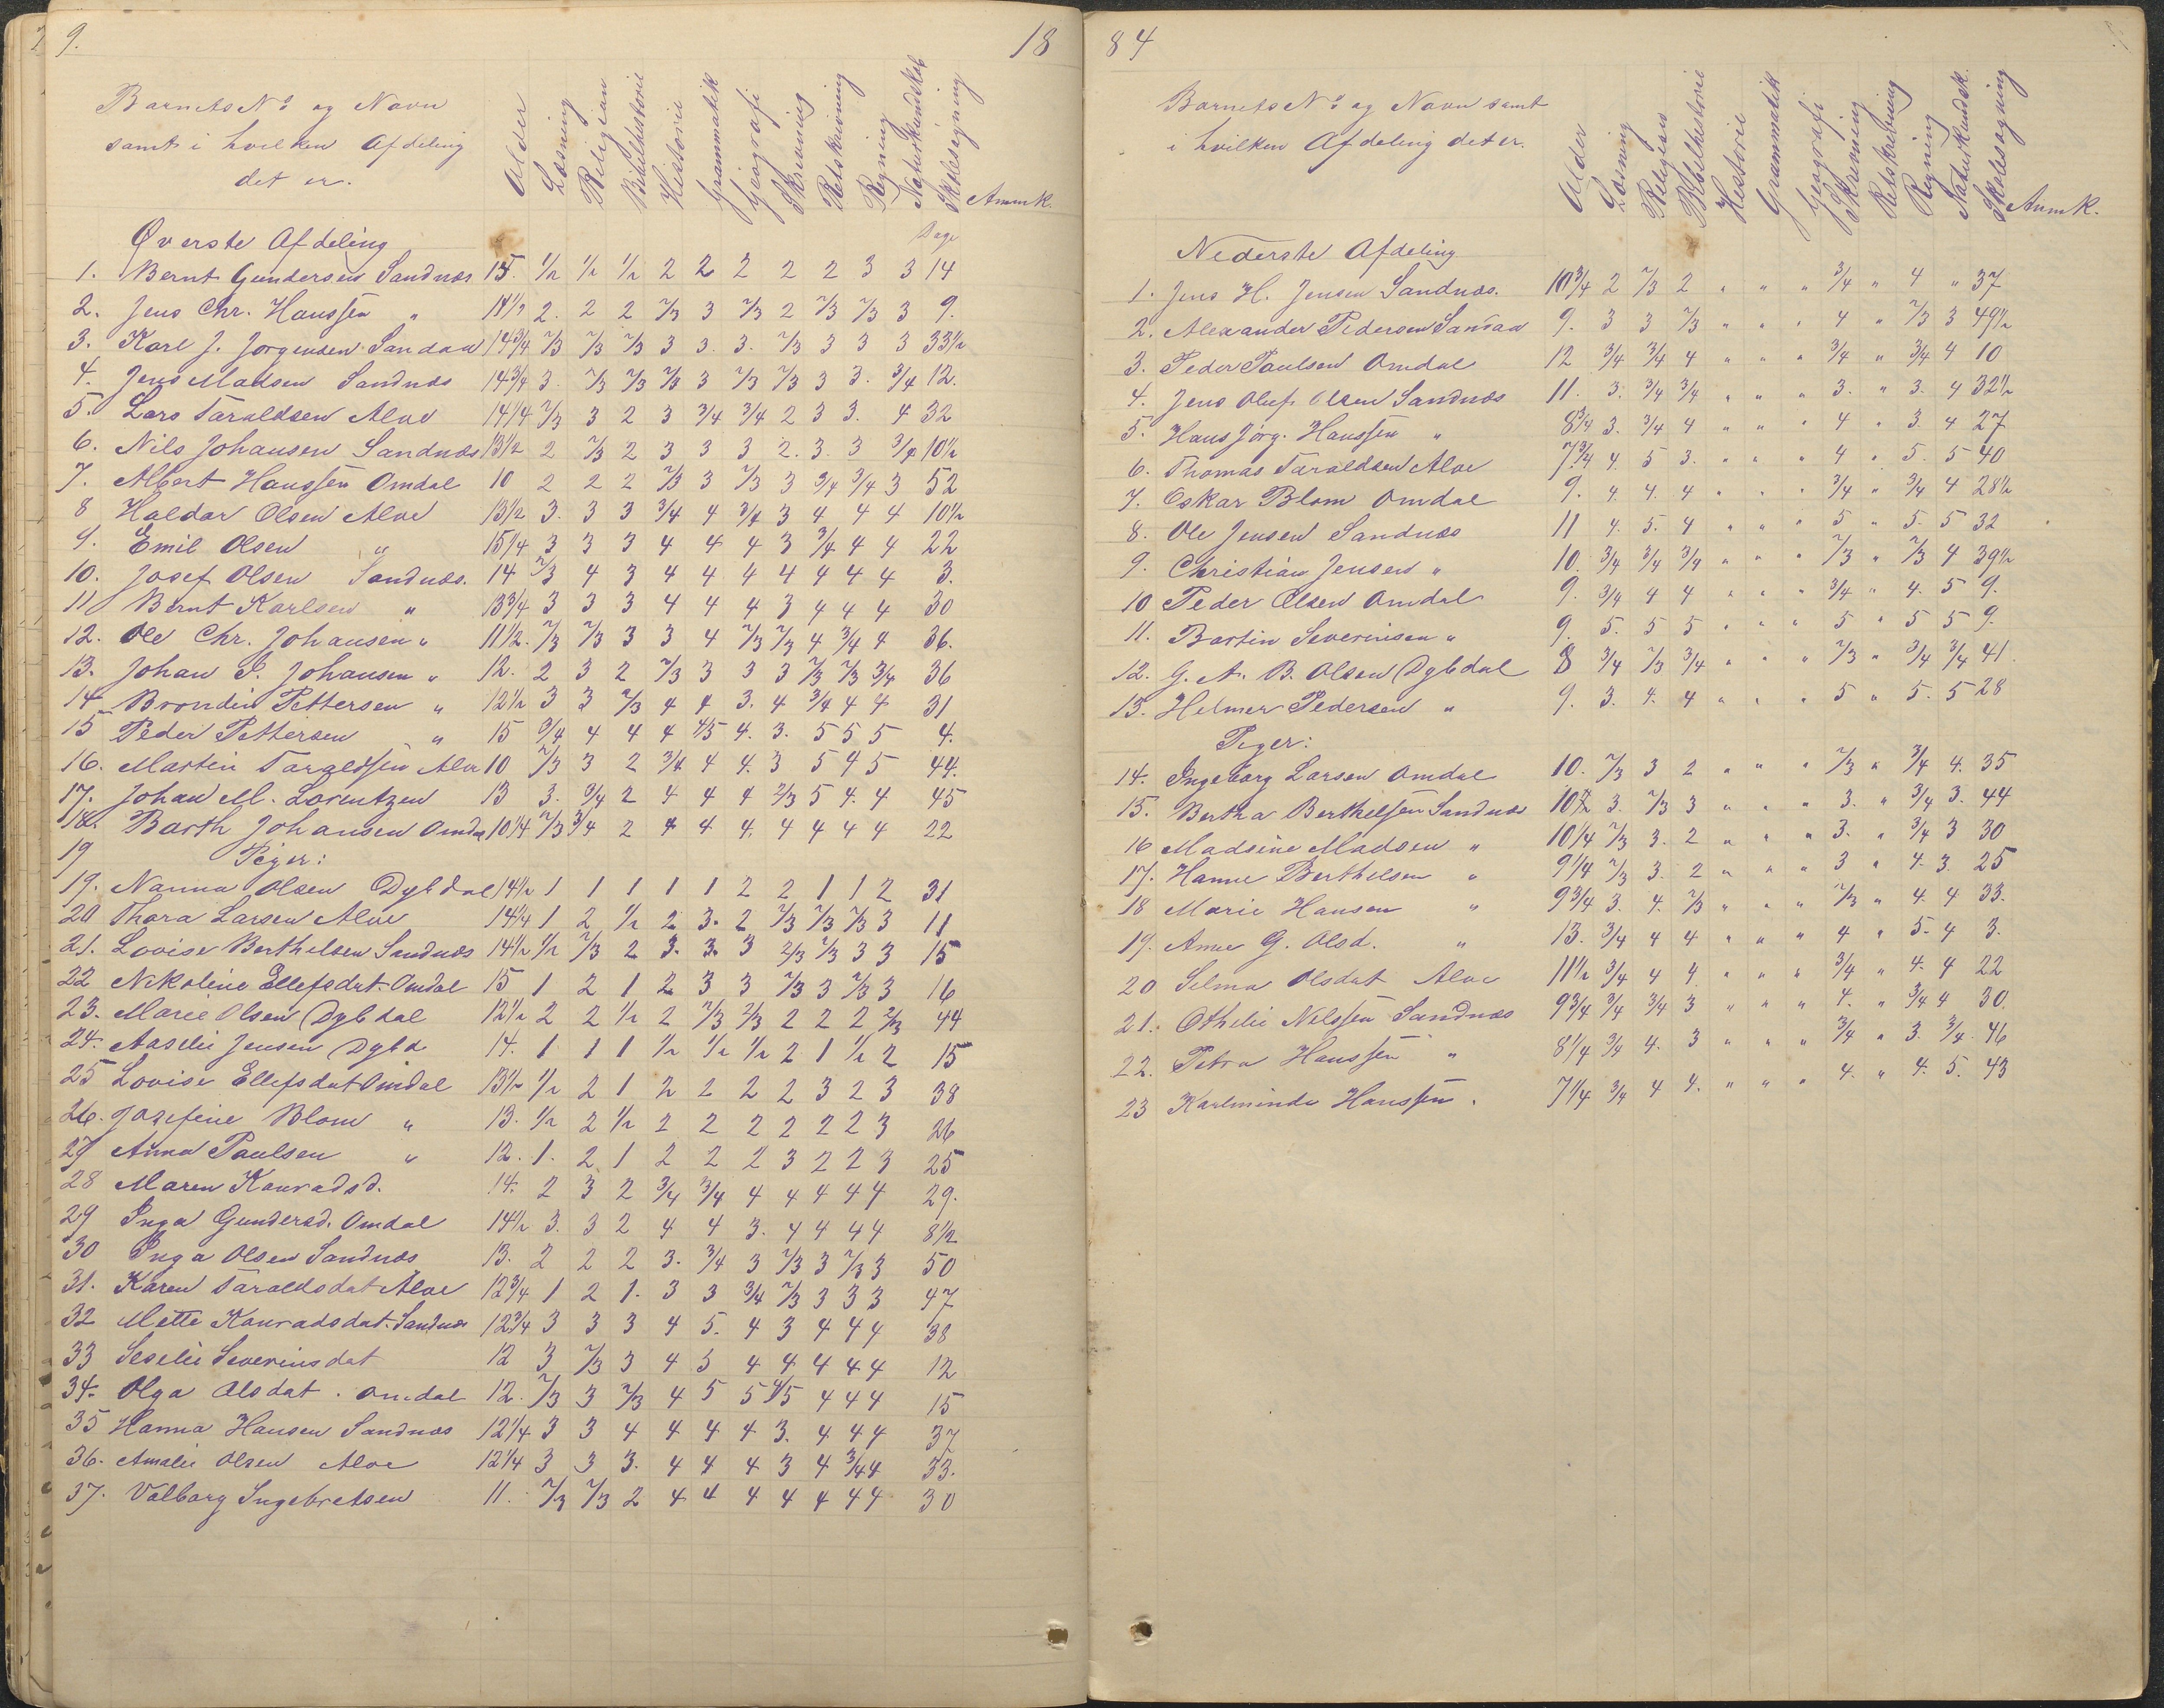 9.
18
Barnets No og Navn
samt i hvilken Afdeling
det er.
Alder Læsning Religion Bibelhistorie Historie Grammatik Geografi Skrivning Retskrivning Regning Naturkundskab Skolesøgning Anmk.
Øverste Afdeling Dage
1. Bernt Gundersen Sandnæs 15. 1/2 1/2 1/2 2 2 2 2 2 3 3 14
2. Jens Chr. Hanssen " 11 1/2 2. 2 2 2/3 3 2/3 2 2/3 2/3 3 9.
3. Karl J. Jørgensen Sandnæs 14 3/4 2/3 2/3 2/3 3 3. 3. 2/3 3 3 3 33 1/2
4. Jens Madsen Sandnæs 14 3/4 3. 2/3 2/3 2/3 3 2/3 2/3 3 3. 3/4 12.
5. Lars Taraldsen Alve 14 1/4 2/3 3 2 3 3/4 3/4 2 3 3. 4 32
6. Nils Johansen Sandnæs 13 1/2 2 2/3 2 3 3 3 2. 3. 3 3/4 10 1/2
7. Albert Hanssen Omdal 10 2 2 2 2/3 3 2/3 3 3/4 3/4 3 52
8 Haldor Olsen Alve 13 1/2 3. 3 3 3/4 4 3/4 3 4 4 4 10 1/2
9. Emil Olsen " 15 1/4 3 3 3 4 4 4 3 3/4 4 4 22
10. Josef Olsen Sandnæs. 14 2/3 4 3 4 4 4 4 4 4 4 3.
11 Bernt Karlsen " 13 3/4 3 3 3 4 4 4 3 4 4 4 30
12. Ole Chr. Johansen " 11 1/2. 2/3 2/3 3 3 4 2/3 2/3 4 3/4 4 36.
13. Johan P. Johansen " 12. 2 3 2 2/3 3 3 3 2/3 2/3 3/4 36
14. Brondin Pettersen " 12 1/2 3 3 2/3 4 4 3. 4 3/4 4 4 31
15 Peder Pettersen " 15 3/4 4 4 4 4/5 4. 3. 5 5 5 4.
16. Martin Taraldsen Alve 10 2/3 3 2 3/4 4 4. 3 5 4 5 44.
17. Johan M. Lorentzen 13 3. 3/4 2 4 4 4 2/3 5 4. 4 45
18. Barth Johansen Omdal 10 1/4 2/3 3/4 2 4 4 4. 4 4 4 4 22
19 Piger:
19. Nanna Olsen Dybdal 14 1/2 1 1 1 1 1 2 2 1 1 2 31
20 Thora Larsen Alve 14 1/4 1 2 1/2 2 3. 2 2/3 2/3 2/3 3 11
21. Lovise Berthelsen Sandnæs 14 1/2 1/2 2/3 2 3. 3. 3 2/3 2/3 3 3 15
22 Nikoline Ellefsdat. Omdal 15 1 2 1 2 3 3 2/3 3 2/3 3 16
23. Marie Olsen Dybdal 12 1/2 2 2 1/2 2 2/3 2/3 2 2 2 2/3 44
24. Aaselie Jensen Dybd 14. 1 1 1 1/2 1/2 1/2 2 1 1/2 2 15
25 Lovise Ellefsdat Omdal 13 1/2 1/2 2 1 2 2 2 2 3 2 3 38
26. Josefine Blom " 13. 1/2 2 1/2 2 2 2 2 2 2 3 26
27 Anna Paulsen " 12. 1. 2 1 2 2 2 3 2 2 3 25
28 Maren Konradsd. 14. 2 3 2 3/4 3/4 4 4 4 4 4 29.
29 Inga Gundersd. Omdal 14 1/2 3. 3 2 4 4 3. 4 4 4 4 8 1/2
30 Inga Olsen Sandnæs 13. 2 2 2 3. 3/4 3 2/3 3 2/3 3 50
31. Karen Taraldsdat Alve 12 3/4 1 2 1. 3 3 3/4 2/3 3 3 3 47
32 Mette Konradsdat. Sandnæs 12 3/4 3 3 3 4 5. 4 3 4 4 4 38
33 Seselie Severinsdat 12 3 2/3 3 4 5 4 4 4 4 4 12
34. Olga Olsdat. Omdal 12. 2/3 3 2/3 4 5 5 4/5 4 4 4 15
35 Hanna Hansen Sandnæs 12 1/4 3 3 4 4 4 4 3. 4 4 4 37
36. Amalie Olsen Alve 12 1/4 3 3 3. 4 4 4 3 4 3/4 4 33.
37. Valborg Ingebretsen 11. 2/3 2/3 2 4 4 4 4 4 4 4 30
84
Barnets No og Navn samt
i hvilken Afdeling det er.
Alder Læsning Religion Bibelhistorie Historie Grammatik Geografi Skrivning Retskrivning Regning Naturkundsk. Skolesøgning Anmk.
Nederste Afdeling
1. Jens H. Jensen Sandnæs. 10 3/4 2 2/3 2 " " " 3/4 " 4 " 37
2. Alexander Pedersen Sandnæs 9. 3 3 2/3 " " " 4 " 2/3 3 49 1/2
3. Peder Paulsen Omdal 12 3/4 3/4 4 " " " 3/4 " 3/4 4 10
4. Jens Oluf Olsen Sandnæs 11. 3. 3/4 3/4 " " " 3. " 3. 4 32 1/2
5. Hans Jørg. Hanssen " 8 3/4 3. 3/4 4 " " " 4 " 3. 4 27
6. Thomas Taraldsen Alve 7 3/4 4. 5 3. " " " 4 " 5. 5 40
7. Oskar Blom Omdal 9. 4. 4. 4 " " " 3/4 " 3/4 4 28 1/2
8. Ole Jensen Sandnæs 11 4. 5. 4 " " " 5 " 5. 5 32
9. Christian Jensen " 10. 3/4 3/4 3/4 " " " 2/3 " 2/3 4 39 1/2
10 Peder Olsen Omdal 9. 3/4 4 4 " " " 3/4 " 4. 5 9.
11. Bartin Severinsen " 9. 5. 5 5 " " " 5 " 5 5 9.
12. G. A. B. Olsen Dybdal 8 3/4 2/3 3/4 " " " 2/3 " 3/4 3/4 41.
13. Helmer Pedersen " 9. 3. 4. 4 " " " 5 " 5. 5 28
Piger:
14. Ingeborg Larsen Omdal 10. 2/3 3 2 " " " 2/3 " 3/4 4. 35
15. Bertha Berthelsen Sandnæs 10 1/2 3. 2/3 3 " " " 3. " 3/4 3. 44
16 Madsine Madsen " 10 1/4 2/3 3. 2 " " " 3. " 3/4 3 30
17. Hanne Berthelsen " 9 1/4 2/3 3. 2 " " " 3 " 4. 3. 25
18 Marie Hansen " 9 3/4 3. 4. 2/3 " " " 2/3 " 4. 4 33.
19. Anne G. Olsd. " 13. 3/4 4 4 " " " 4 " 5. 4 3.
20 Selma Olsdat Alve 11 1/2 3/4 4 4 " " " 3/4 " 4. 4 22
21. Othelie Nilssen Sandnæs 9 3/4 3/4 3/4 3 " " " 4. " 3/4 4 30.
22. Petra Hanssen " 8 1/4 3/4 4. 3 " " " 3/4 " 3. 3/4 46
23 Karlminda Hanssen. 7 1/4 3/4 4 4. " " " 4. " 4. 5. 43